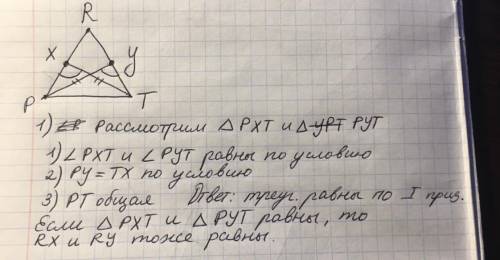 R
X
y
P
T
1) Рассмотрим △ PXT и △ PYT
1) ∠ PXT и ∠ PYT равны по условию
2) PY = TX по условию
3) PT общая Ответ: треуг. равны по I приз.
Если △ PXT и △ PYT равны, то
RX и RY тоже равны.